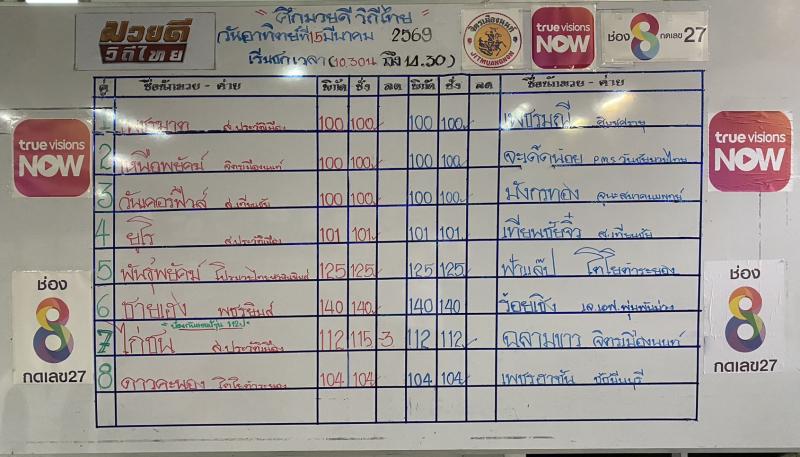 มวยดี
วิถีไทย
"ศึกมวยดี วิถีไทย"
วันอาทิตย์ที่ 15 มีนาคม 2569
เริ่มชกเวลา (10.30น ถึง 14.30)
จิตรเมืองนนท์
JITMUANGNON
true visions
NOW
ช่อง 8 กดเลข 27
คู่ ชื่อนักมวย - ค่าย พิกัด ชั่ง ลด พิกัด ชั่ง ลด ชื่อนักมวย - ค่าย
1 ส.ประวัติเมือง 100 100 100 100 เพชรมณี
2 เหนือพยัคฆ์ จิตรเมืองนนท์ 100 100 100 100 จะเด็ดน้อย P.M.S.วันชัยมวยไทย
3 ส.เทียนชัย 100 100 100 100 มังกรทอง
4 ยูโร ส.ประวัติเมือง 101 101 101 101 ส.เทียนชัย
5 พันธุ์พยัคฆ์ 125 125 125 125 ฟ้าแล๊ป โตโยต้าระยอง
6 ชายเฮง 140 140 140 140 ร้อยเชิง
ป้องกันแชมป์รุ่น 112 ป.
7 ไก่ชน ส.ประวัติเมือง 112 115 -3 112 112 ฉลามขาว จิตรเมืองนนท์
8 ดาวคะนอง โตโยต้าระยอง 104 104 104 104
true visions
NOW
true visions
NOW
ช่อง
8
กดเลข27
ช่อง
8
กดเลข27